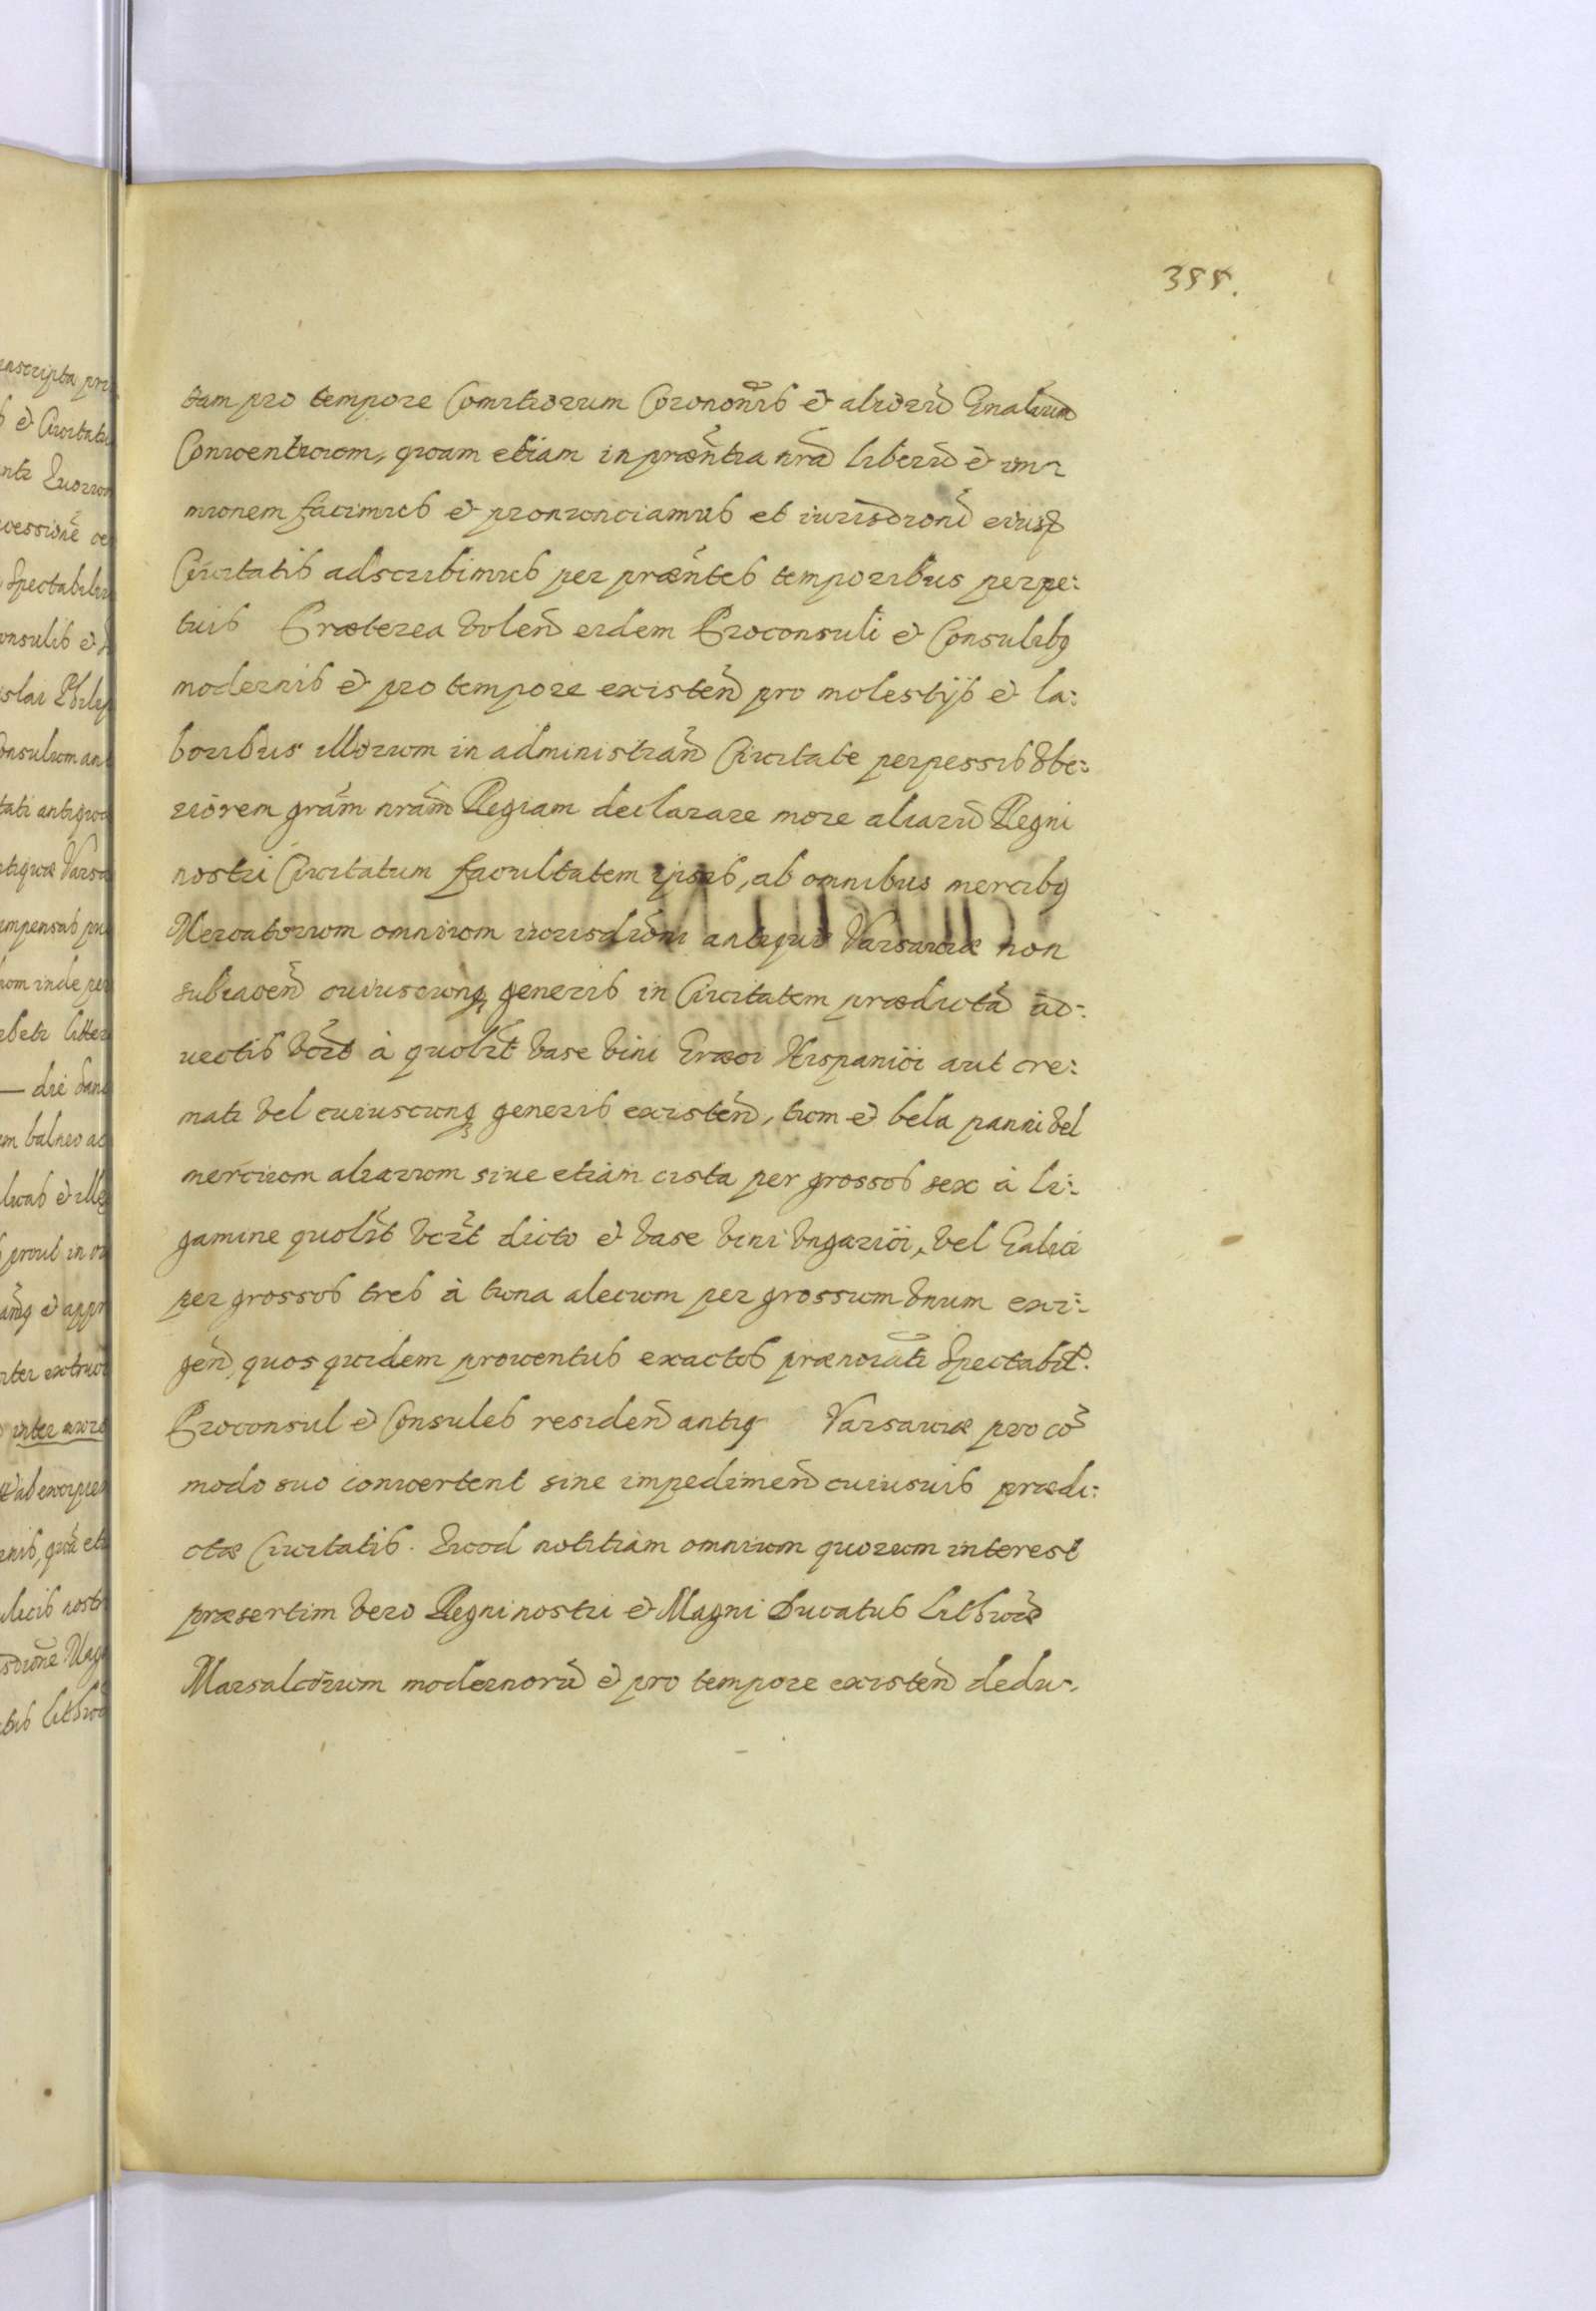 355.
tam pro tempore Comitiorum Coronõnis & aliorũ Gnalium
Conventuum, quam etiam in præñtia nrã liberũ & im-
munem facimus & pronunciamus et iurisdẽoni eiusd
Civitatis adscribimus per præñtes temporibus perpe:
tuis Præterea volen eidem Proconsuli & Consulibq
modernis & pro tempore existen pro molestijs & la:
boribus illorum in administran Civitate perpessis vbe:
riorem grãm nrãm Regiam declarare more aliarũ Regni
nostri Civitatum facultatem ipsis, ab omnibus mercibq
Mercatorum omnium iurisdioni antiquæ Varsaviæ non
subiacen cuiuscunq generis in Civitatem prædictã ad:
uectis vczt à quolzt vase vini Græci Hispanici aut cre:
mati vel cuiuscunq generis existen, tum & bela panni vel
mercium aliarum siue etiam cista per grossos sex à li:
gamine quolzt vczt dicto & vase vini vngarici, vel Galici
per grossos tres à tuna alecum per grossum vnum exi:
gen, quos quidem proventus exactos prænoiati Spectabil:
Proconsul & Consules residen antiq Varsaviæ pro cõ
modo suo convertent sine impedimen cuiusuis prædi:
ctæ Civitatis. Quod notitiam omnium quorum interest
præsertim vero Regni nostri & Magni Ducatus Lithuæ
Marsalcorum modernorũ & pro tempore existen dedu-